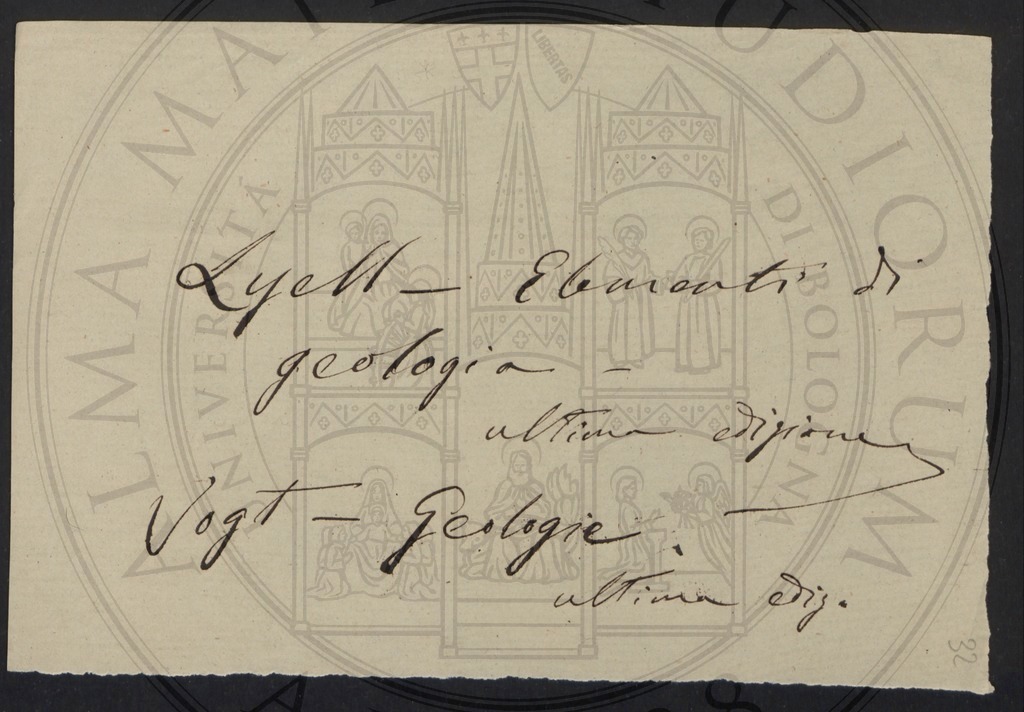 Lyell – Elementi di
geologia –
ultima edizione
Vogt – Geologie.
ultima ediz.
32
ALMA MATER STUDIORUM
UNIVERSITÁ DI BOLOGNA
LIBERTAS